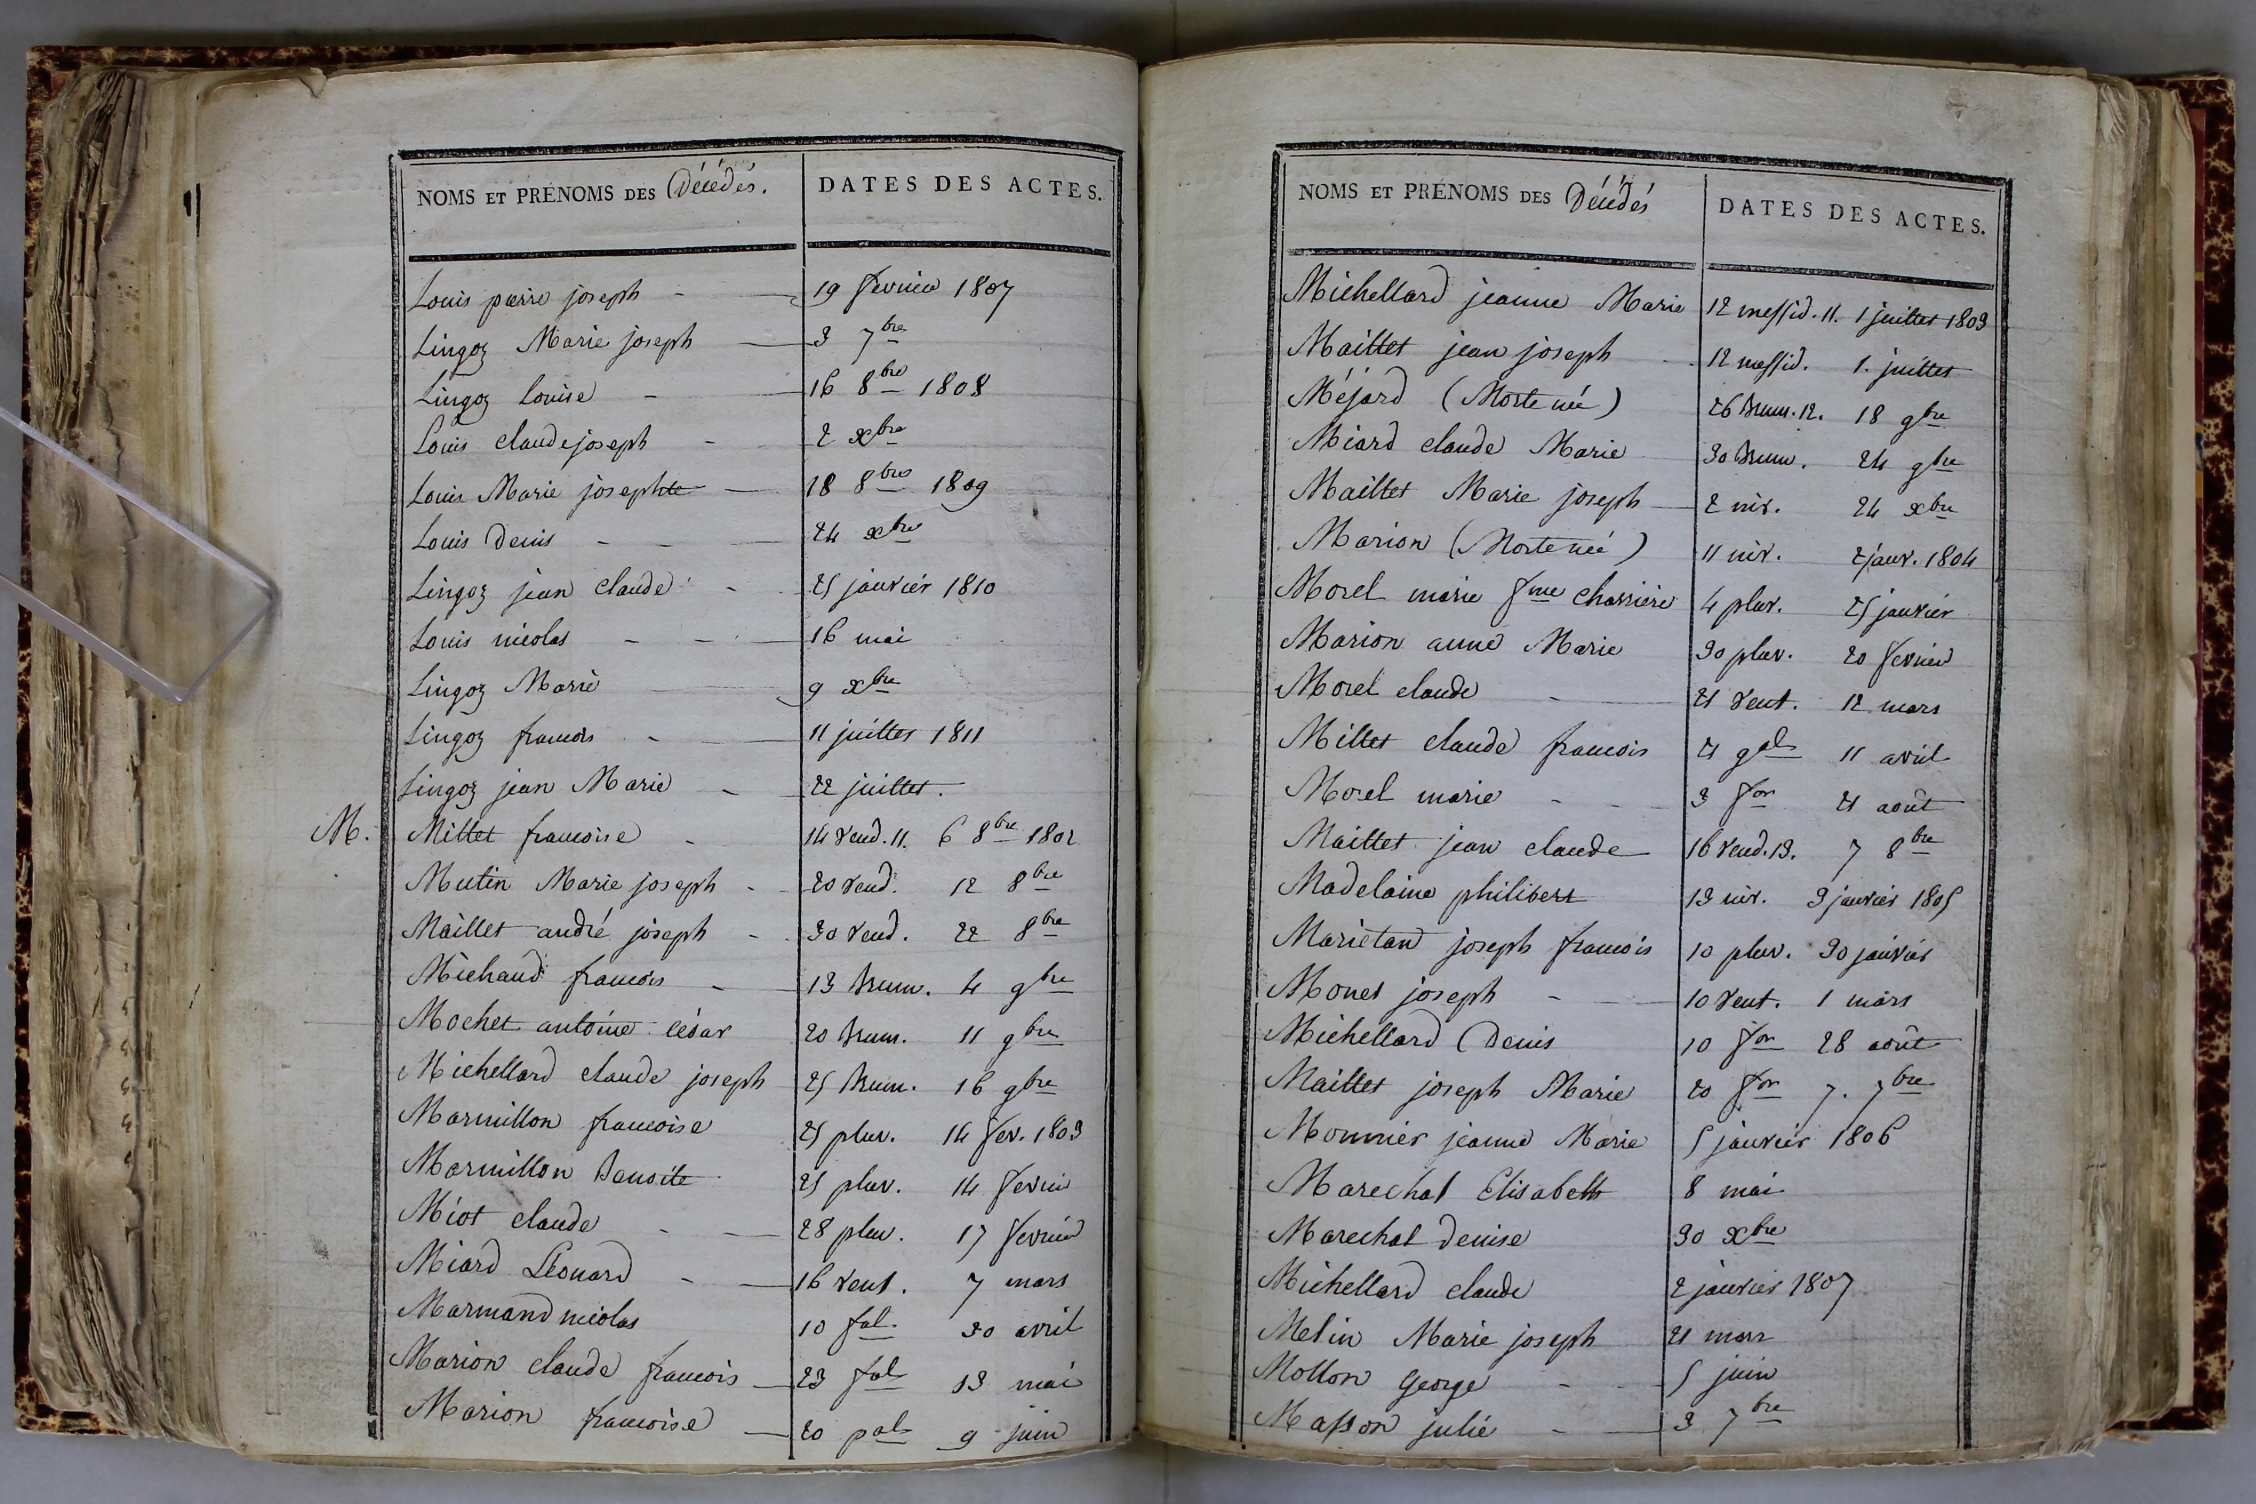 NOMS ET PRÉNOMS DES Décédés. DATES DES ACTES.
Louis pierre joseph - 19 fevrier 1807
Lingoz Marie joseph 3 7bre
Lingoz Louise - 16 8bre 1808
Louis claude joseph - 2 xbre
Louis Marie josephte 18 8bre 1809
Louis Denis - - 24 xbre
Lingoz jean claude - 25 janvier 1810
Louis nicolas - - 16 mai
Lingoz Marie 9 xbre
Lingoz francois - 11 juillet 1811
Lingoz jean Marie - 22 juillet.
M. Millet francoise - 14 vend. 11. 6 8bre 1802
Mutin Marie joseph - 20 vend. 12 8bre
Maillet andré joseph - 30 vend. 22 8bre
Michaud francois - 13 brum. 4 9bre
Mochet antoine césar 20 brum. 11 9bre
Michellard claude joseph 25 brum. 16 9bre
Marmillon francoise 25 pluv. 14 fev. 1803
Marmillon benoite 25 pluv. 14 fevrier
Miot claude - 28 pluv. 17 fevrier
Miard Léonard - 16 vent. 7 mars
Marmand nicolas 10 fal. 30 avril
Marion claude francois 23 fal 13 mai
Marion francoise 20 pal 9 juin
NOMS ET PRÉNOMS DES Décédés DATES DES ACTES.
Michellard jeanne Marie 12 messid. 11. 1 juillet 1803
Maillet jean joseph 12 messid. 1. juillet
Méjard (Morte née) 26 brum. 12. 18 9bre
Miard claude Marie 30 brum. 24 9bre
Maillet Marie joseph 2 niv. 24 xbre
Marion (Morte née) 11 niv. 2 janv. 1804
Morel marie fme charriere 4 pluv. 25 janvier
Marion anne Marie 30 pluv. 20 fevrier
Morel claude - 21 vent. 12 mars
Millet claude francois 21 gal 11 avril
Morel marie - - 3 for 21 août
Maillet jean claude 16 vend. 13. 7 8bre
Madelaine philibert 13 niv. 3 janvier 1805
Marietan joseph francois 10 pluv. 30 janvier
Monet joseph - 10 vent. 1 mars
Michellard Denis 10 for 28 août
Maillet joseph Marie 20 for 7. 7bre
Monnier jeanne Marie 5 janvier 1806
Marechal Elisabeth 8 mai
Marechal denise 30 xbre
Michellard claude 2 janvier 1807
Melin Marie joseph 21 mars
Mollon George - 5 juin
Masson julie - 3 7bre